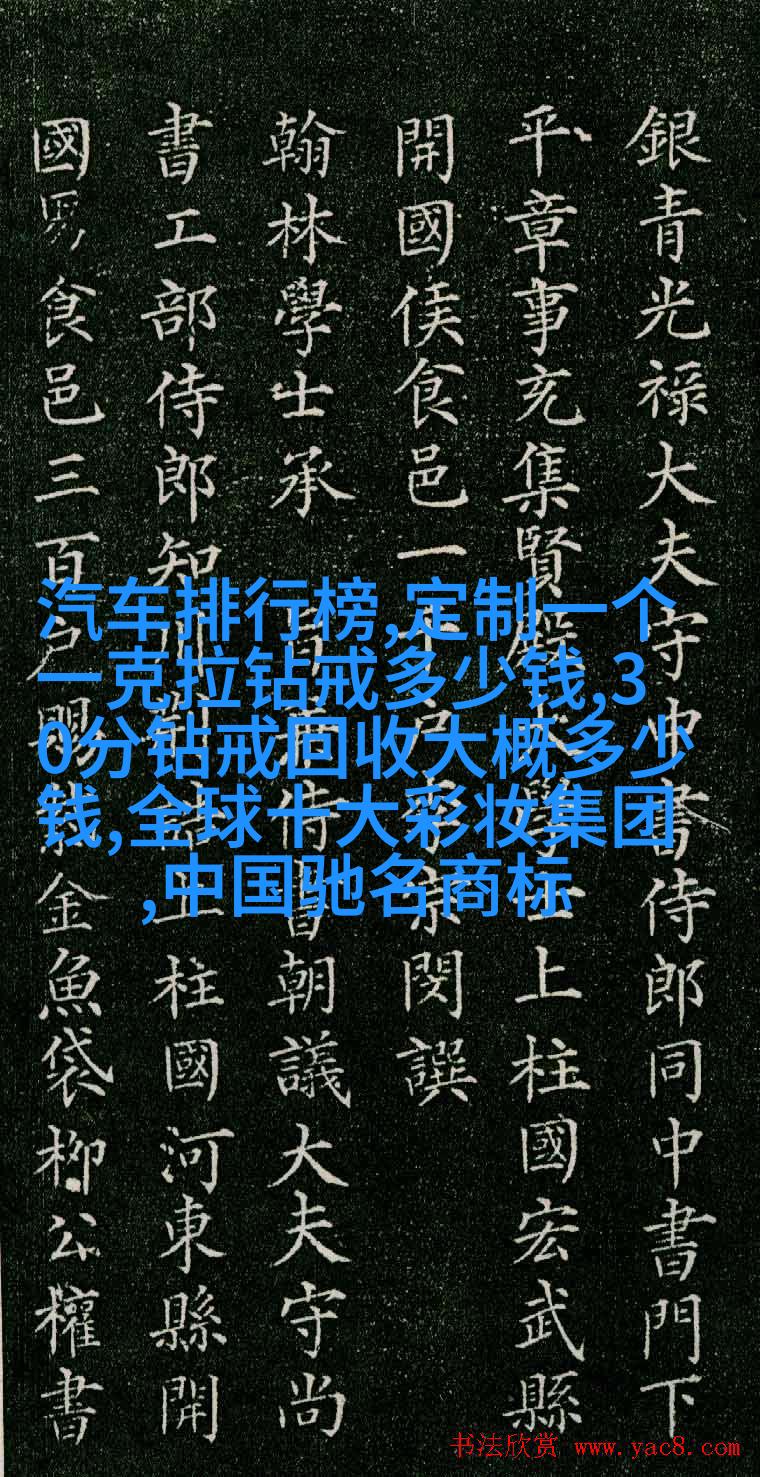 銀青光禄大夫守中書侍郎同中書門下
平章事充集賢殿大學士上柱國宏武縣
開國侯食邑一千户宗閔譔
翰林學士承旨兼侍書朝議大夫守尚
書工部侍郎知制誥上柱國河東縣開
國男食邑三百户賜紫金魚袋柳公權書
汽车排行榜,定制一个
一克拉钻戒多少钱,3
0分钻戒回收大概多少
钱,全球十大彩妆集团
,中国驰名商标
书法欣赏 www.yac8.com